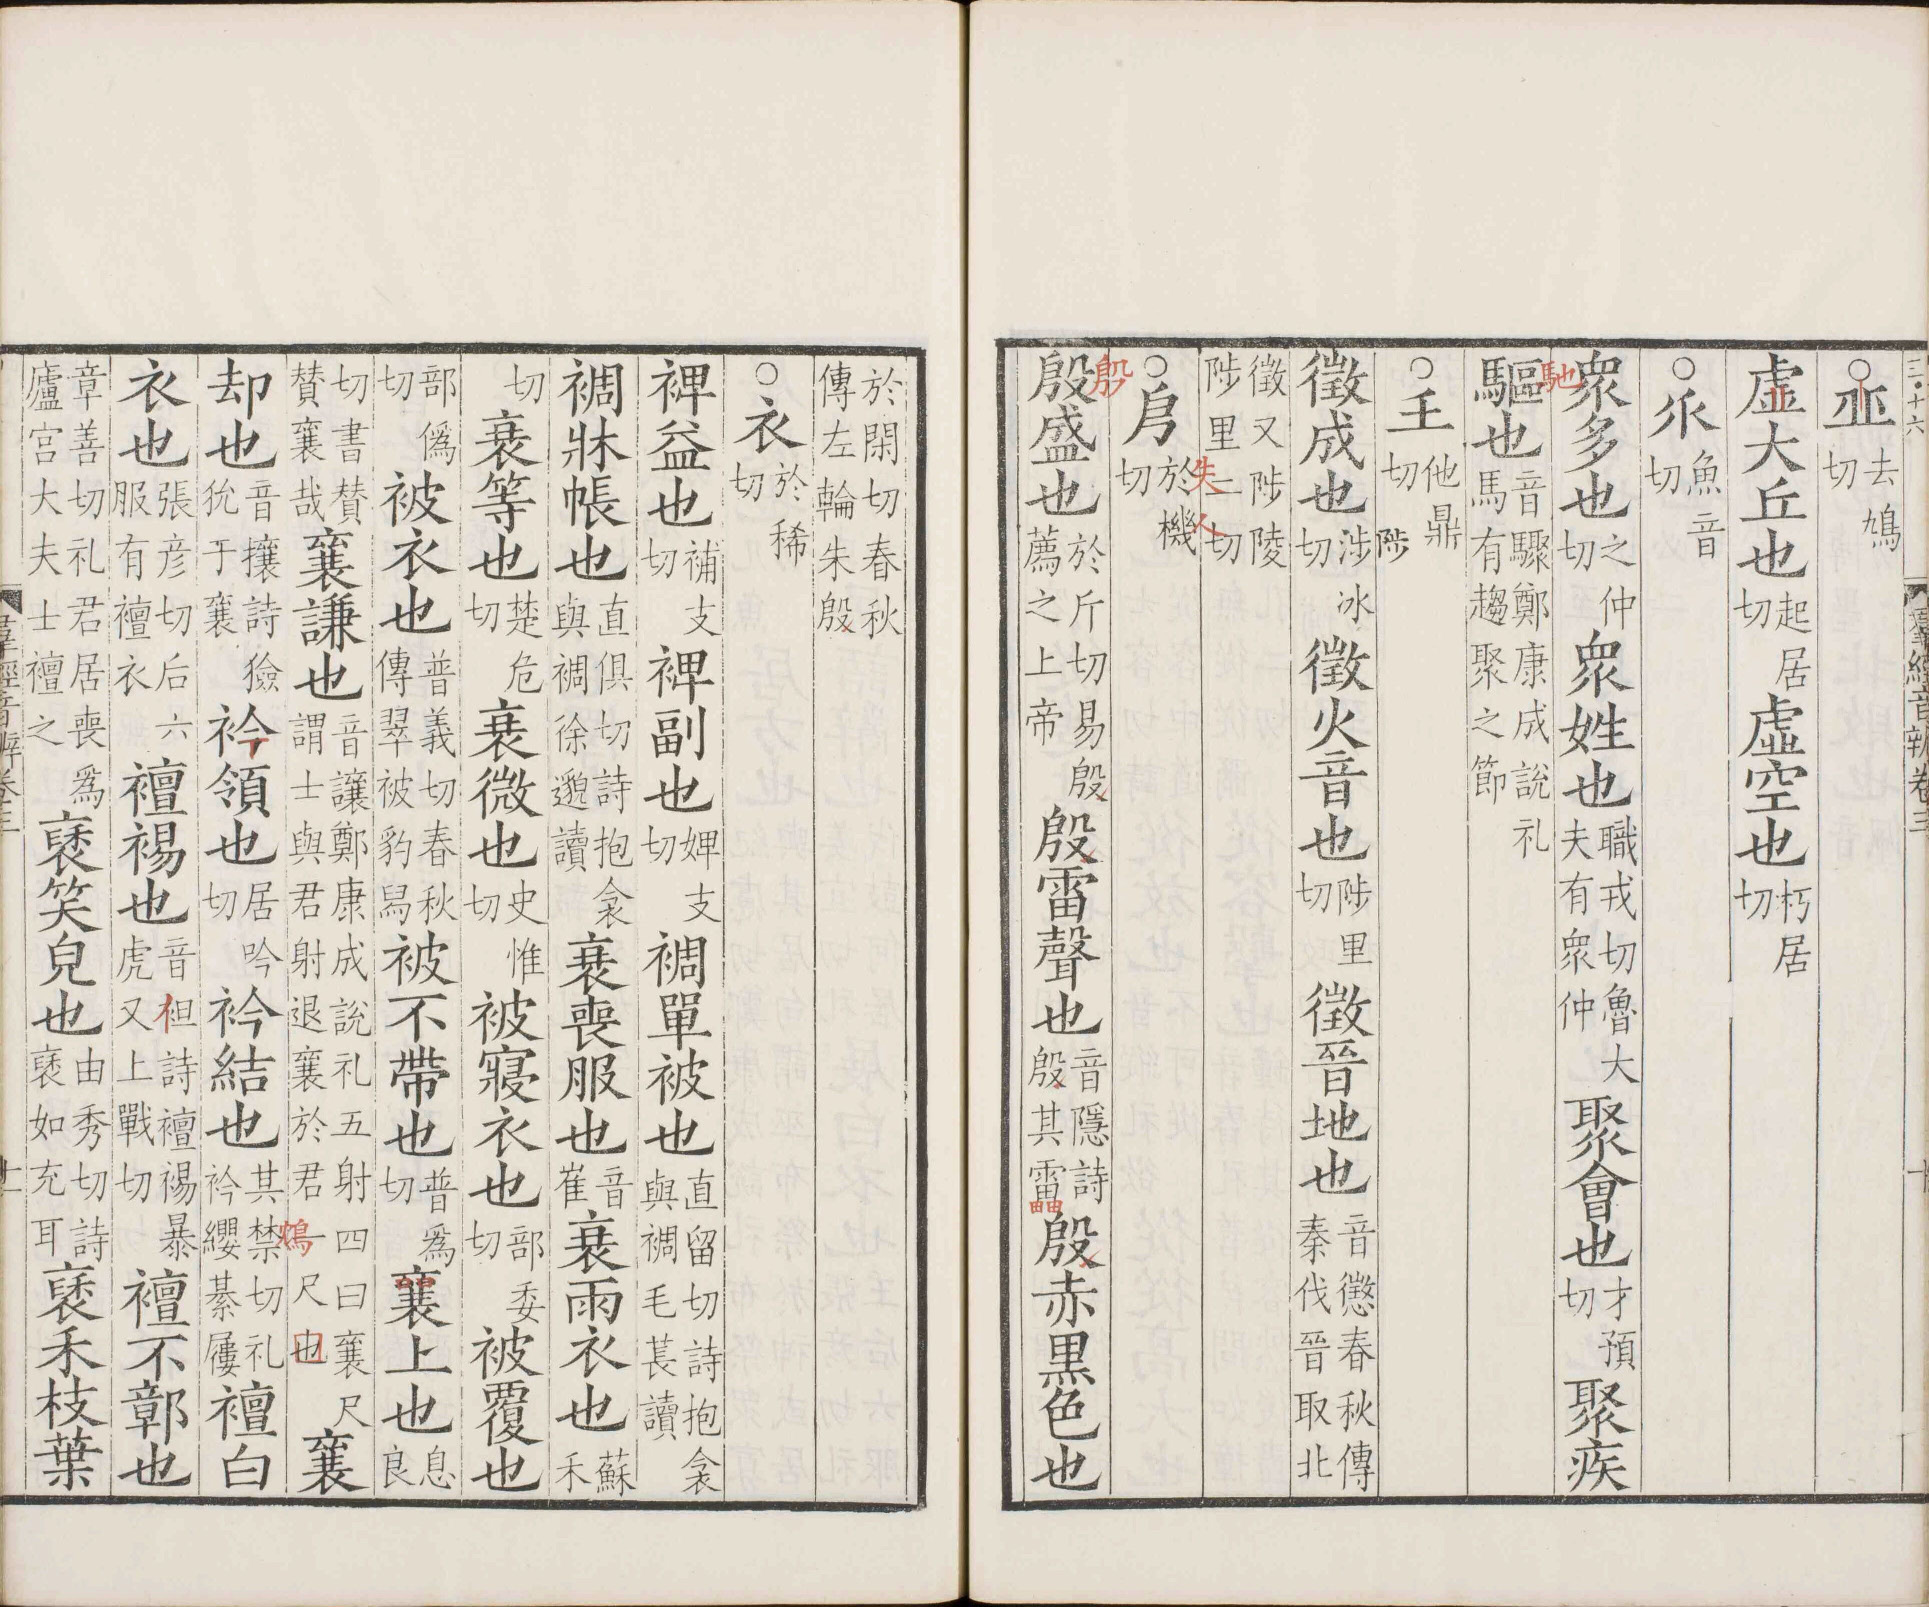 ○丠去鳩切
虛大丘也起居切虛空也朽居切
○㐺魚音切
眾多也之仲切眾姓也職戎切魯大夫有眾仲聚會也才預切聚疾
驅也音驟鄭康成說礼馬有趨聚之節
馳
○𡈼他鼎切
徵成也涉冰切徵火音也陟里切徵晉地也音懲春秋傳秦伐晉取北
徵又陟陵陟里二切
失人
○㐆於機切
殷
殷盛也於斤切易殷薦之上帝殷雷聲也音隱詩殷其雷殷赤黒色也
於閑切春秋傳左輪朱殷
○衣於稀切
裨益也補支切裨副也婢支切裯單被也直留切詩抱衾與裯毛萇讀
裯牀帳也直俱切詩抱衾與裯徐邈讀衰喪服也音崔衰雨衣也蘇禾
切衰等也楚危切衰微也史惟切被寢衣也部委切被覆也
部偽切被衣也普義切春秋傳翠被豹舄被不帶也普為切襄上也息良
切書贊贊襄哉襄謙也音讓鄭康成說礼五射四曰襄尺謂士與君射退襄於君一尺也襄
却也音攘詩獫狁于襄衿領也居吟切衿結也其禁切礼衿纓綦屨襢白
鴆
衣也張彥切后六服有襢衣襢裼也音袒詩襢裼暴虎又上戰切襢不鄣也
章善切礼君居喪為廬宮大夫士襢之褎笑皃也由秀切詩褎如充耳褎禾枝葉
三·十六
羣經音辨卷三
十
羣經音辨卷三
十一